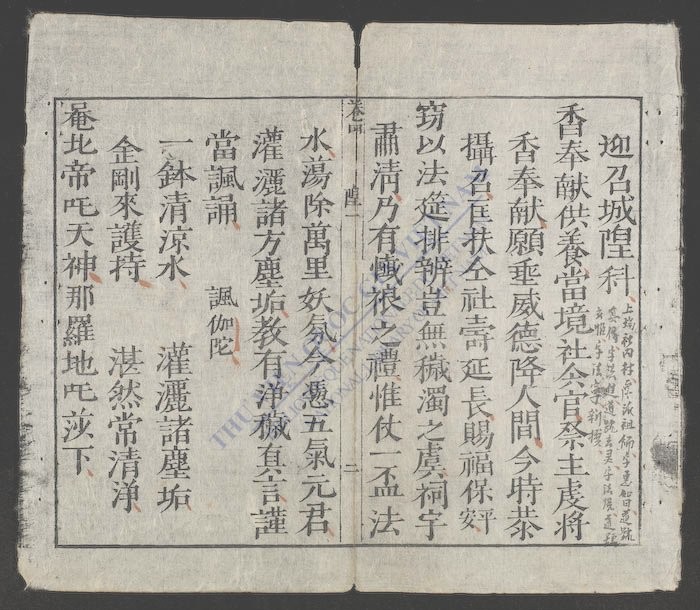 迎召城隍科
香奉献供養當境社令官祭主虔将
香奉献願垂威德降人間今時恭
攝召匡扶仝社壽延長賜福保安平
窃以法筵排辨豈無穢濁之虞祠宇
肅清乃有懴禳之禮惟仗一盃法
卷四 隍 二
水蕩除萬里妖氛今憑五氣元君
灌灑諸方塵垢教有淨穢真言謹
當諷誦 諷伽陀
一鉢清凉水 灌灑諸塵垢
金剛來護持 湛然常清淨
菴比帝吒天神那羅地吒莎下